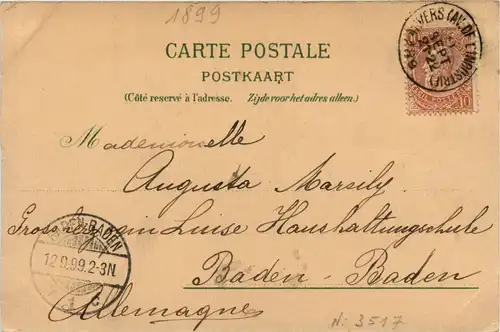 1899
CARTE POSTALE
POSTKAART
(Côté reservé à l'adresse. Zijde voor het adres alleen.)
ANVERS (AV. DE L'INDUSTRIE)
SEPT
10
Mademoiselle
Augusta Marsily
Grossherzogin Luise Haushaltungschule
Baden-Baden
Allemagne
BADEN-BADEN
12.9.99.2-3N
1 c
N: 3517